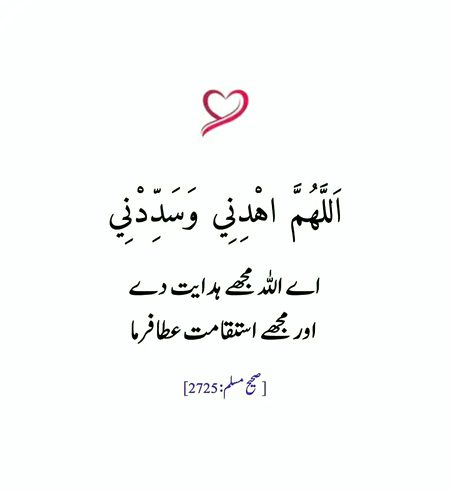 اَللَّهُمَّ اهْدِنِي وَسَدِّدْنِي
اے اللہ مجھے ہدایت دے
اور مجھے استقامت عطا فرما
[صحیح مسلم:2725]